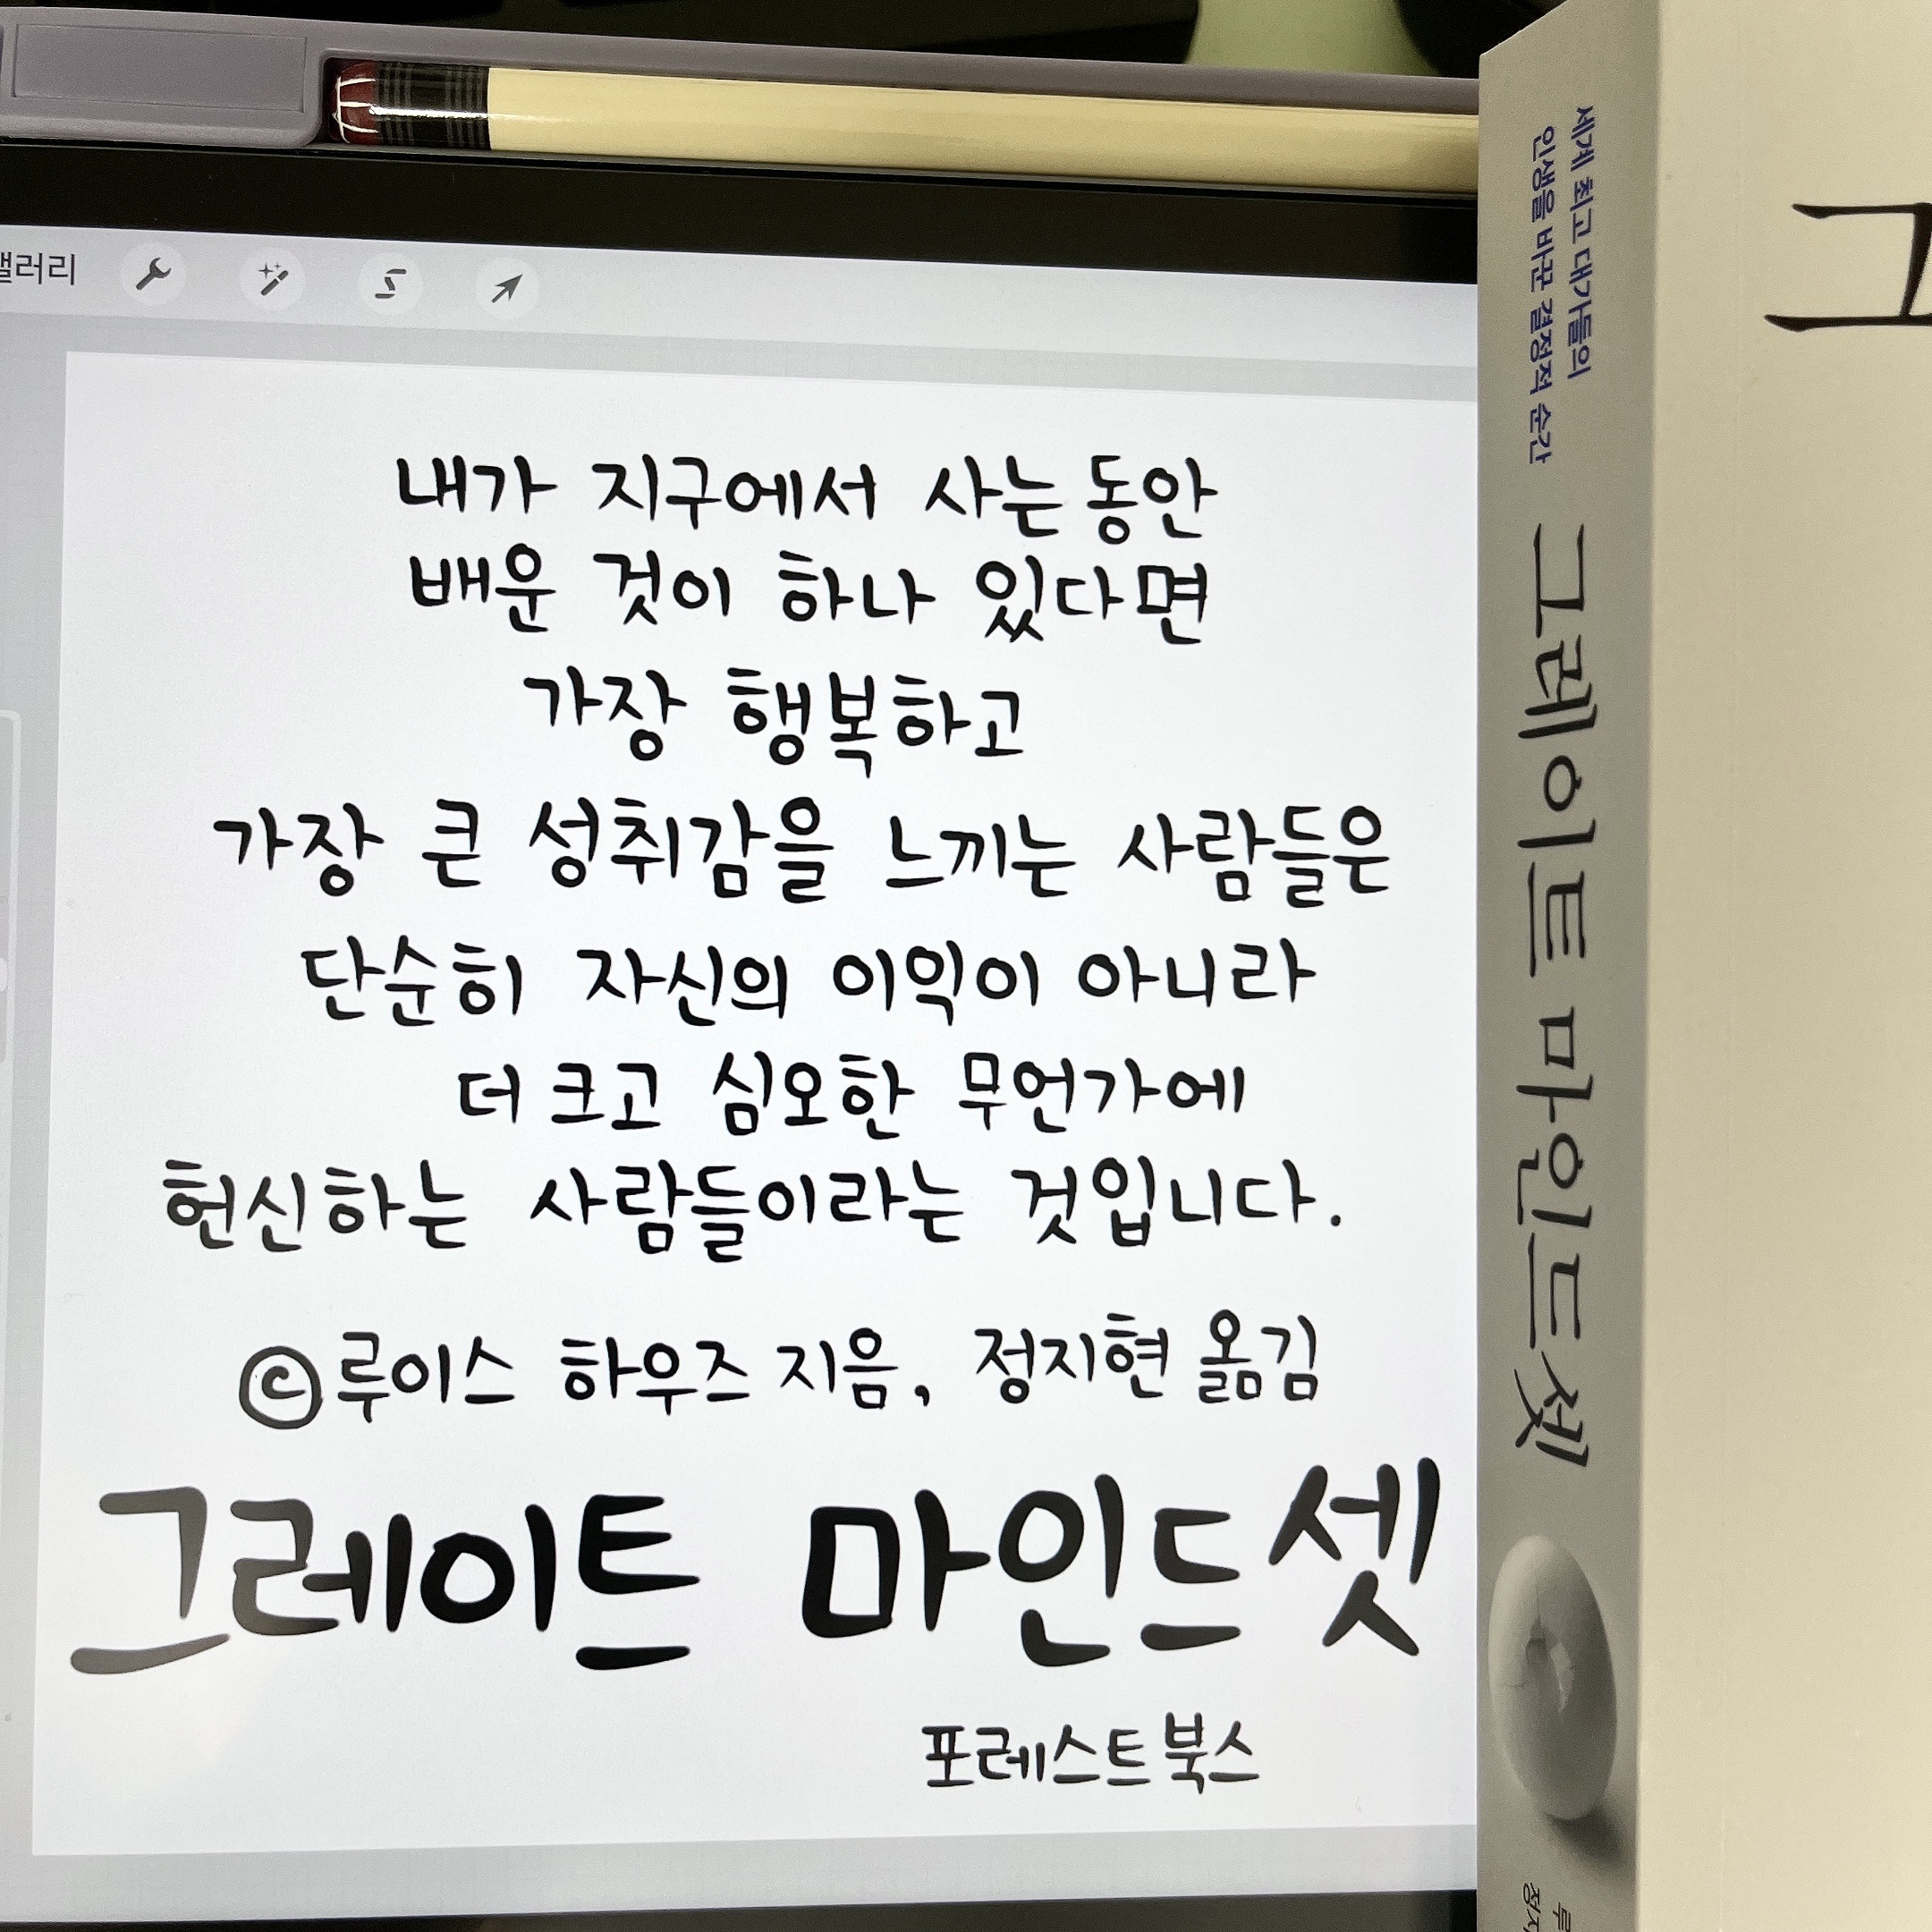 갤러리
내가 지구에서 사는동안
배운 것이 하나 있다면
가장 행복하고
가장 큰 성취감을 느끼는 사람들은
단순히 자신의 이익이 아니라
더 크고 심오한 무언가에
헌신하는 사람들이라는 것입니다.
©루이스 하우즈 지음, 정지현 옮김
그레이트 마인드셋
포레스트북스
세계 최고 대가들의
인생을 바꾼 결정적 순간
그레이트 마인드셋
그